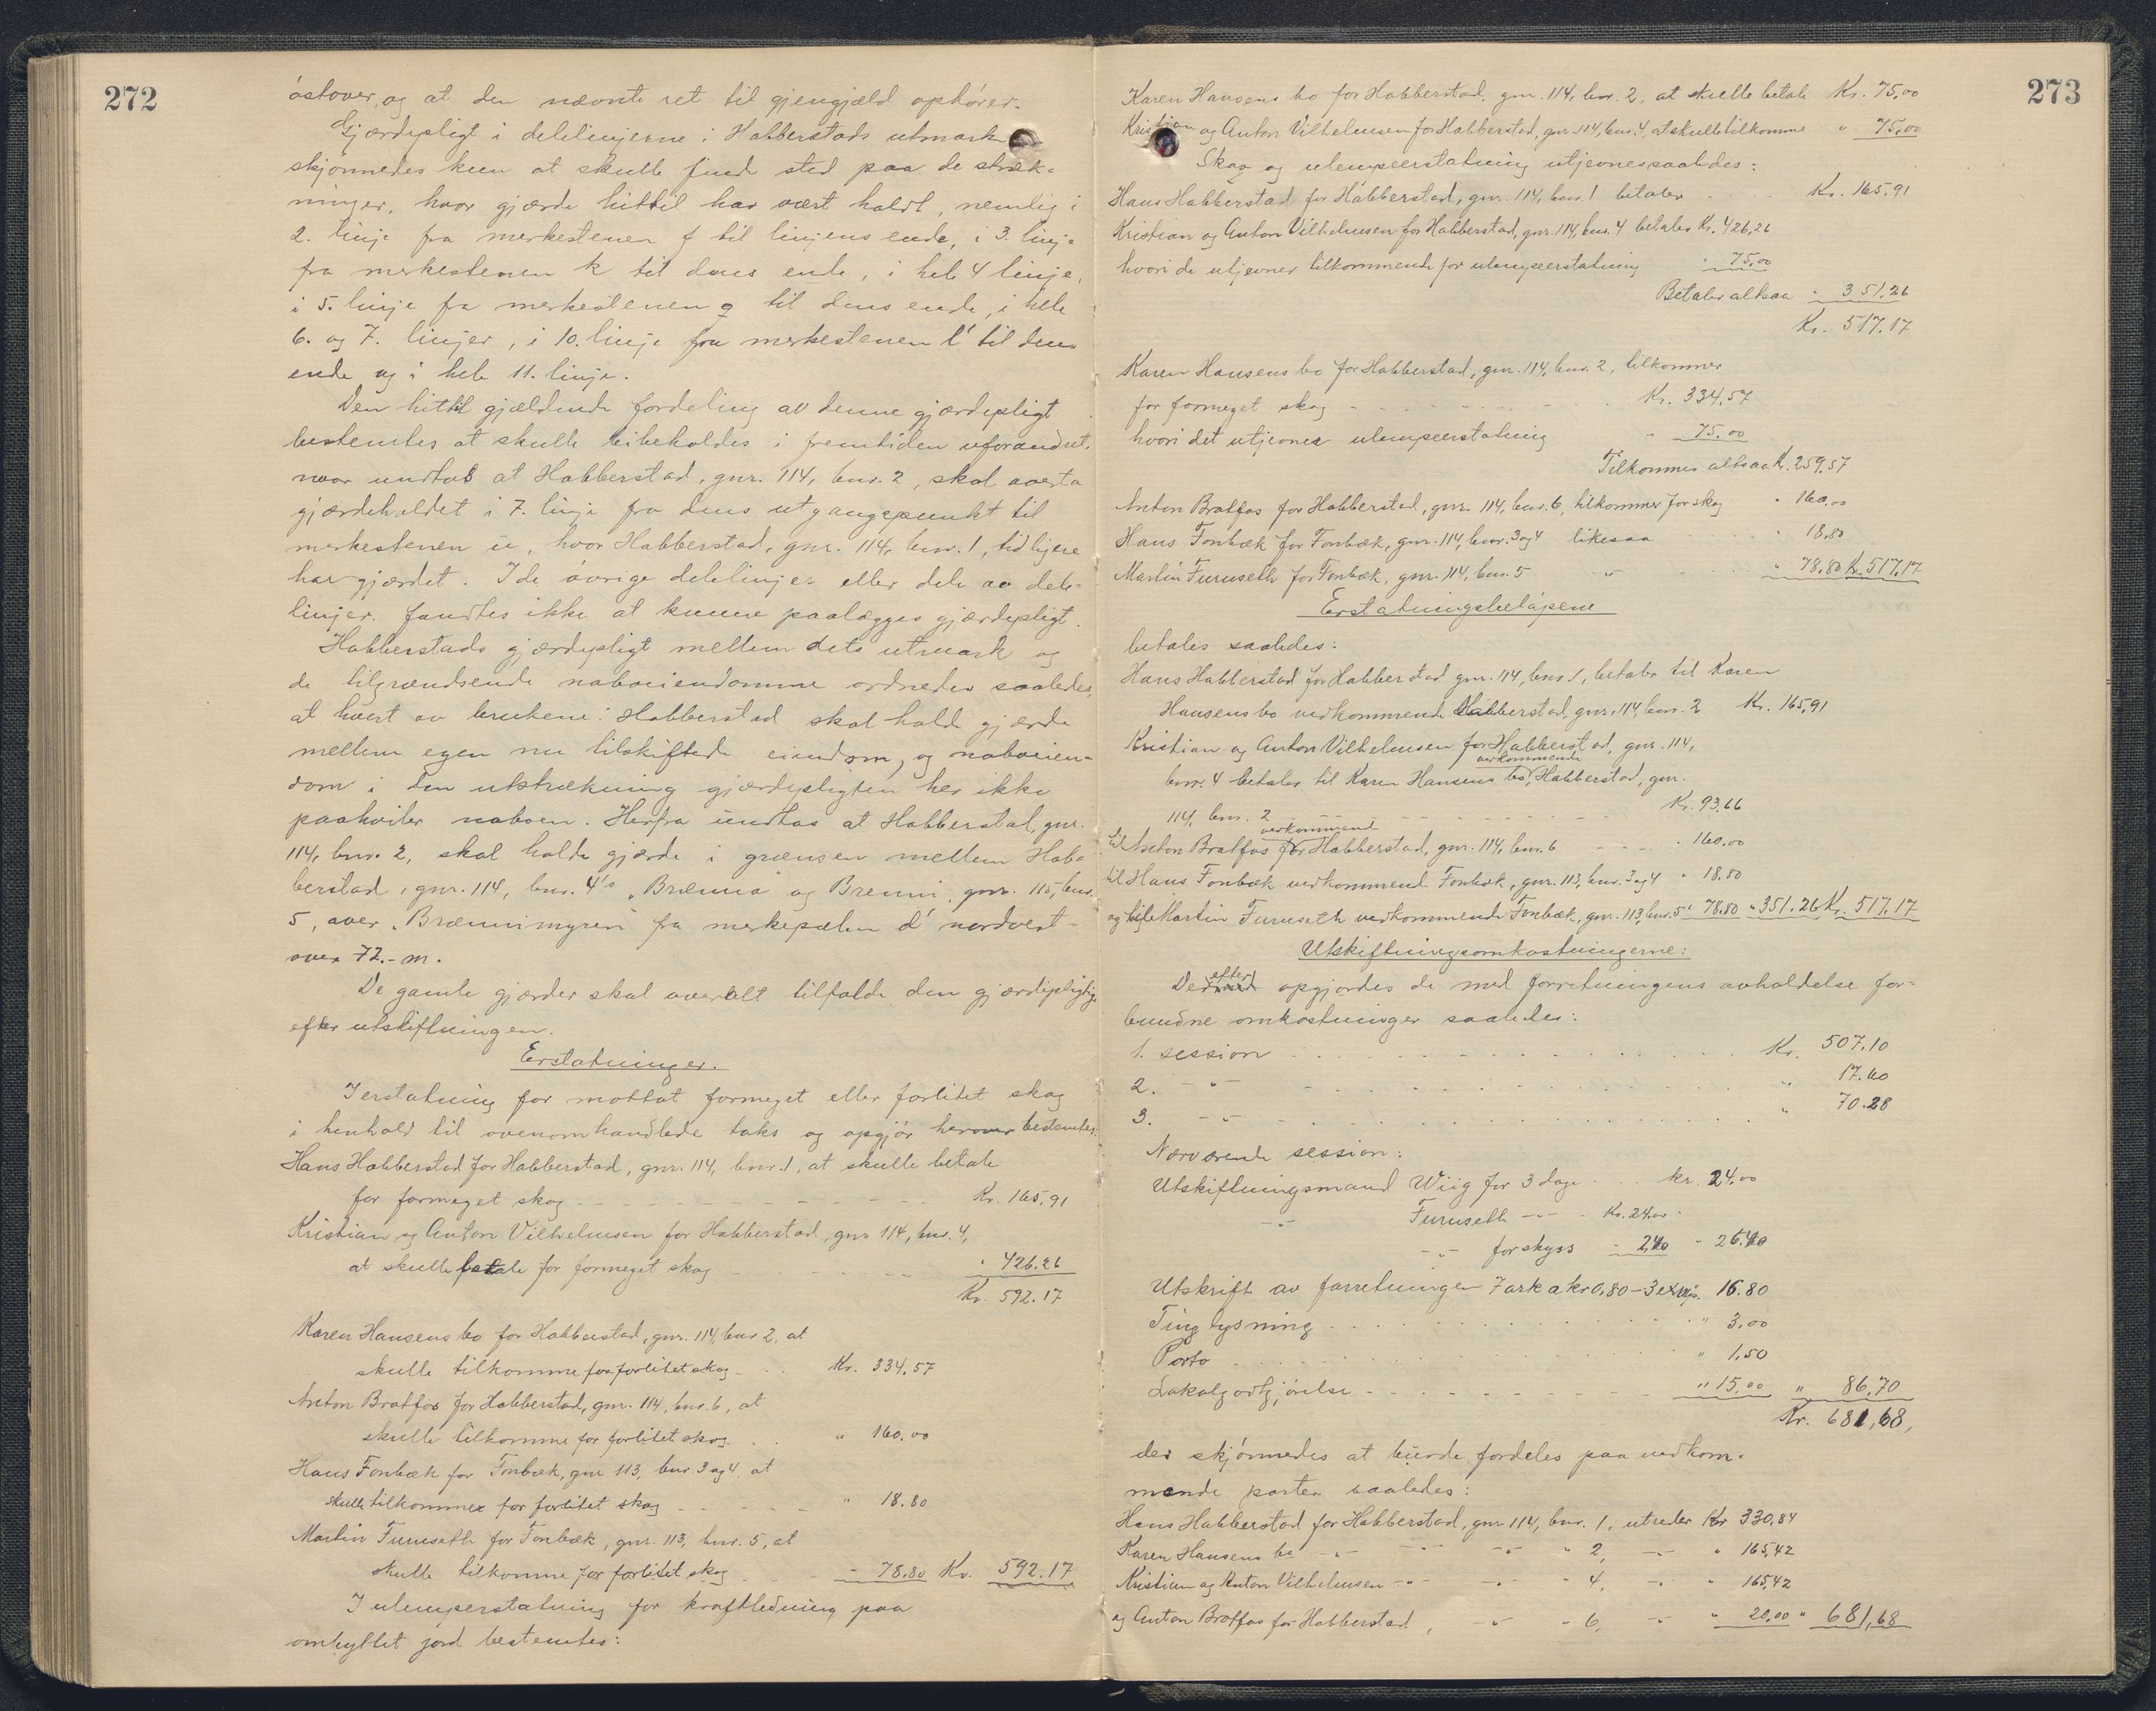 272
östover, og at den nævnte ret til gjengjæld ophører.
Gjærdepligt i delelinjerne i Habberstads utmark
skjønnedes kun at skulle finde sted paa de stræk-
ninger, hvor gjærde hittil har vært holdt, nemlig i
2. linje fra merkestenen f til linjens ende, i 3. linje
fra merkestenen k til dens ende, i hele 4 linje,
i 5. linje fra merkestenen q til dens ende, i hele
6. og 7. linjer, i 10. linje fra merkestenen l' til dens
ende og i hele 11. linje.
Den hittil gjældende fordeling av denne gjærdepligt
bestemtes at skulle bibeholdes i fremtiden uforandret,
naar undtas at Habberstad, gnr. 114, bnr. 2, skal overta
gjærdeholdet i 7. linje fra dens utgangspunkt til
merkestenen u, hvor Habberstad, gnr. 114, bnr. 1, tidligere
har gjærdet. I de øvrige delelinjer eller dele av dele-
linjer fandtes ikke at kunne paalægges gjærdepligt.
Habberstads gjærdepligt mellem dets utmark og
de tilgrændsende naboeiendomme ordnedes saaledes,
at hvert av brukene i Habberstad skal hold gjærde
mellem egen nu tilskiftede eiendom, og naboeien-
dom i den utstrækning gjærdepligten her ikke
paahviler naboen. Herfra undtas at Habberstad, gnr.
114, bnr. 2, skal holde gjærde i grænsen mellem Hab-
berstad, gnr. 114, bnr. 4's "Brænna" og Brenni, gnr. 115, bnr.
5, over "Brænnimyren" fra merkepælen d' nordvest-
over 72.- m.
De gamle gjærder skal overalt tilfalde den gjærdepligtige
efter utskiftningen.
Erstatninger.
I erstatning for mottat formeget eller forlitet skog
i henhold til ovenomhandlede taks og opgjør herover bestemtes:
Hans Habberstad for Habberstad, gnr. 114, bnr. 1, at skulle betale
for formeget skog - - - Kr. 165,91
Kristian og Anton Vilhelmsen for Habberstad, gnr 114, bnr. 4,
at skulle betale for formeget skog - - " 426.26
Kr. 592.17
Karen Hansens bo for Habberstad, gnr. 114, bnr 2, at
skulle tilkomme for forlitet skog - . . Kr. 334,57
Anton Bratfos for Habberstad, gnr. 114, bnr. 6, at
skulle tilkomme for forlitet skog . . " 160,00
Hans Fonbæk for Fonbæk, gnr 113, bnr. 3 og 4, at
skulle tilkomme for forlitet skog - - - " 18.80
Martin Furuseth for Fonbæk, gnr. 113, bnr. 5, at
skulle tilkomme for forlitet skog . - - 78,80 Kr. 592.17
I ulempeerstatning for kraftledning paa
ombyttet jord bestemtes:
273
Karen Hansens bo for Habberstad, gnr. 114, bnr. 2, at skulle betale Kr. 75,00
Kristian og Anton Vilhelmsen for Habberstad, gnr. 114, bnr. 4, at skulle tilkomme " 75,00
Skog og ulempeerstatning utjevnes saaledes:
Hans Habberstad for Habberstad, gnr. 114, bnr. 1 betaler . . . Kr. 165.91
Kristian og Anton Vilhelmsen for Habberstad, gnr. 114, bnr. 4 betaler Kr. 426,26
hvori de utjevner tilkommende for ulempeerstatning " 75,00
Betaler altsaa " 351.26
Kr. 517.17
Karen Hansens bo for Habberstad, gnr. 114, bnr. 2, tilkommer
for formeget skog - . . . . Kr. 334,57
hvori det utjevnes ulempeerstatning " 75.00
Tilkommer altsaa Kr. 259,57
Anton Bratfos for Habberstad, gnr. 114, bnr. 6, tilkommer for skog " 160,00
Hans Fonbæk for Fonbæk, gnr. 114, bnr. 3 og 4 likesaa . . . " 18,80
Martin Furuseth for Fonbæk, gnr. 114, bnr. 5 -"- . . . " 78,80 Kr. 517,17
Erstatningsbeløpene
betales saaledes:
Hans Habberstad for Habberstad gnr. 114, bnr. 1, betaler til Karen
Hansens bo vedkommende Habberstad, gnr. 114, bnr. 2 Kr. 165,91
Kristian og Anton Vilhelmsen for Habberstad, gnr. 114,
bnr. 4 betaler til Karen Hansens bo vedkommende Habberstad, gnr.
114, bnr. 2 - - - - Kr. 93,66
til Anton Bratfos vedkommende for Habberstad, gnr. 114, bnr. 6 - - - " 160,00
til Hans Fonbæk vedkommende Fonbæk, gnr. 113, bnr. 3 og 4 " 18.80
og til Martin Furuseth vedkommende Fonbæk, gnr. 113, bnr. 5 " 78,80 " 351.26 Kr. 517,17
Utskiftningsomkostningerne:
Derefter opgjordes de med forretningens avholdelse for-
bundne omkostninger saaledes:
1. session - . . . . Kr. 507.10
2. -"- . . . . " 17.60
3. -"- . . . . " 70.28
Nærværende session:
Utskiftningsmand Wiig for 3 dage . . . kr. 24,00
-"- Furuseth -"- - Kr. 24,00 -
-"- for skyss - 2,40 " 26.40
Utskrift av forretningen 7 ark a kr 0,80 - 3 expl. 16.80
Tinglysning . . . . " 3,00
Porto . . . . " 1,50
Lokalgodtgjørelse - - - - " 15,00 " 86,70
Kr. 681,68,
der skjønnedes at burde fordeles paa vedkom-
mende parter saaledes:
Hans Habberstad for Habberstad, gnr 114, bnr. 1, utreder Kr 330,84
Karen Hansens bo -"- -"- -"- " 2, -"- " 165,42
Kristian og Anton Vilhelmsen -"- -"- " 4, -"- " 165,42
og Anton Bratfos for Habberstad, -"- " 6, -"- " 20,00 " 681,68